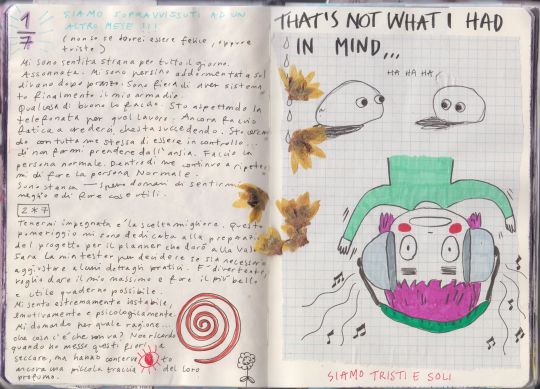 1/7
SIAMO SOPRAVVISSUTI AD UN
ALTRO MESE !!!
(non so se dorrei essere felice, oppure
triste)
Mi sono sentita strana per tutto il giorno.
Assonnata. Mi sono persino addormentata sul
divano dopo pranzo. Sono fiera di aver sistema
to finalmente il mio armadio.
Qualcosa di buono lo faccio. Sto aspettando la
telefonata per quel lavoro. Ancora faccio
fatica a crederci, che sta succedendo. Sto cercan
do con tutta me stessa di essere in controllo...
di non farmi prendere dall'ansia. Faccio la
persona normale. Dentro di me continuo a ripeter
mi di fare la persona Normale.
Sono stanca — spero domani di sentirmi
meglio e di fare cose utili.
2*7
Tenermi impegnata è la scelta migliore. Questo
pomeriggio mi sono dedicata alla preparazio
del progetto per il planner che darò alla Vale
Sarà la mia tester per decidere se sia necessario
aggiustare alcuni dettagli pratici. E' divertente,
voglio dare il mio massimo e fare il più bello
e utile quaderno possibile.
Mi sento estremamente instabile,
emotivamente e psicologicamente.
Mi domando per quale ragione...
che cosa c'è che non va? Non ricordo
quando ho messo questi fiori a
seccare, ma hanno conserva to
ancora una piccola traccia del loro
profumo.
THAT'S NOT WHAT I HAD
IN MIND...
HA HA HA
SIAMO TRISTI E SOLI